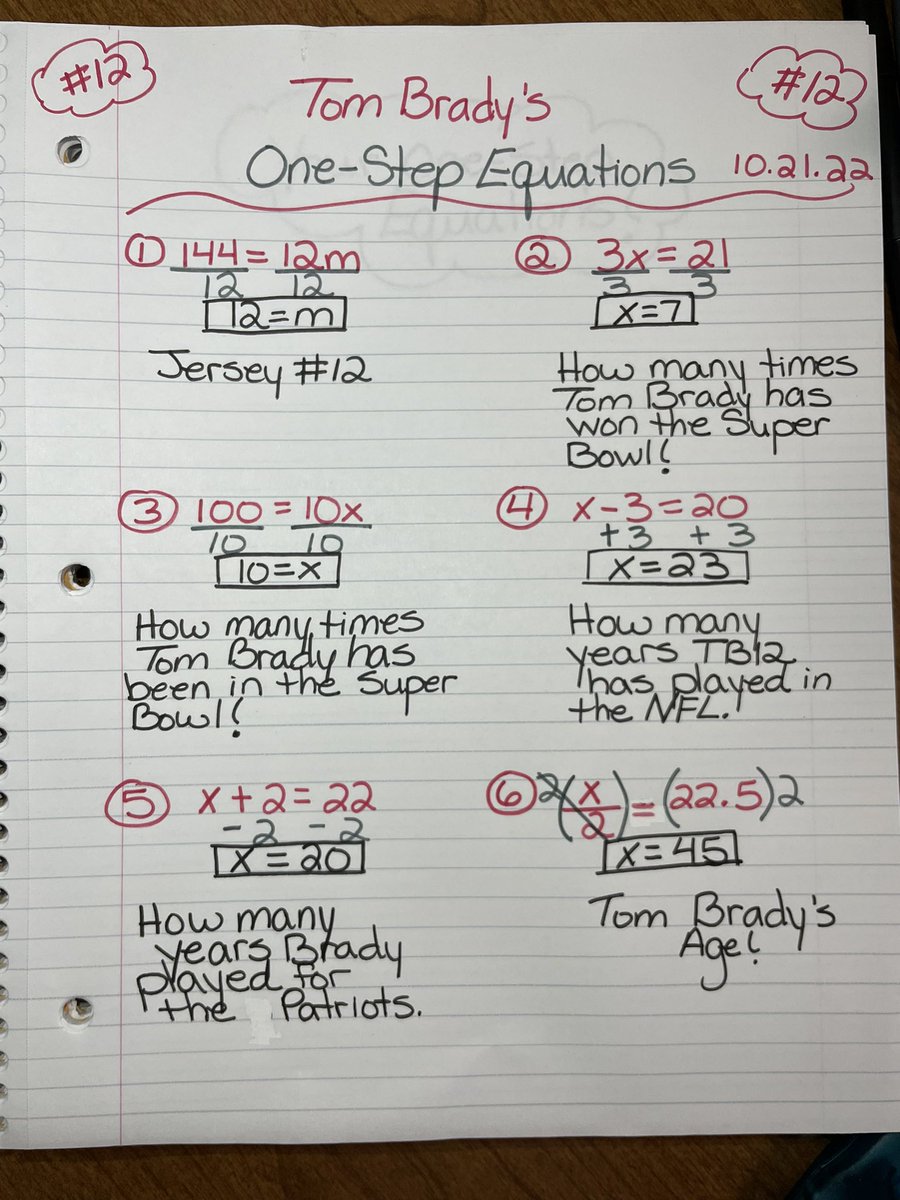 #12
#12
Tom Brady's
One-Step Equations
10.21.22
① 144 = 12m
12 12
12=m
Jersey #12
② 3x = 21
3 3
x=7
How many times
Tom Brady has
won the Super
Bowl!
③ 100 = 10x
10 10
10=x
How many times
Tom Brady has
been in the Super
Bowl!
④ x-3=20
+3 +3
x=23
How many
years TB12
has played in
the NFL.
⑤ x+2=22
-2 -2
x=20
How many
years Brady
played for
the Patriots.
⑥ 2(x/2)=(22.5)2
x=45
Tom Brady's
Age!